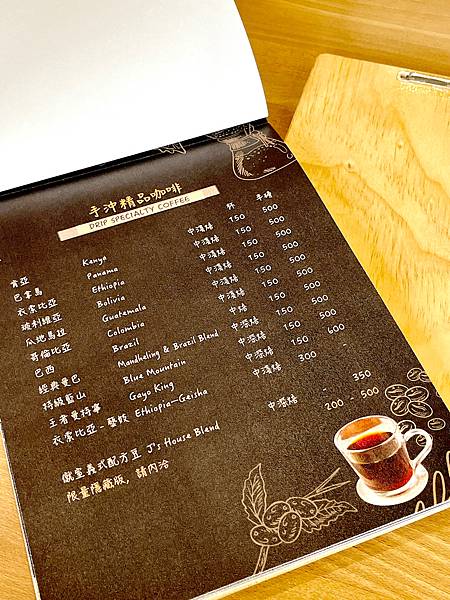 手沖精品咖啡
DRIP SPECIALTY COFFEE
杯 半磅
肯亞 Kenya 中淺焙 150 500
巴拿馬 Panama 中淺焙 150 500
衣索比亞 Ethiopia 中淺焙 150 500
玻利維亞 Bolivia 中淺焙 150 500
瓜地馬拉 Guatemala 中淺焙 150 500
哥倫比亞 Colombia 中淺焙 150 500
巴西 Brazil 150 500
經典曼巴 Mandheling & Brazil Blend 中深焙 150 500
特級藍山 Blue Mountain 中深焙 150 500
王者曼特寧 Gayo King 中深焙 150 600
衣索比亞-藝妓 Ethiopia-Geisha 中淺焙 300 -
歐室義式配方豆 J's House Blend 中深焙 - 350
限量隱藏版, 請內洽 200 - 500